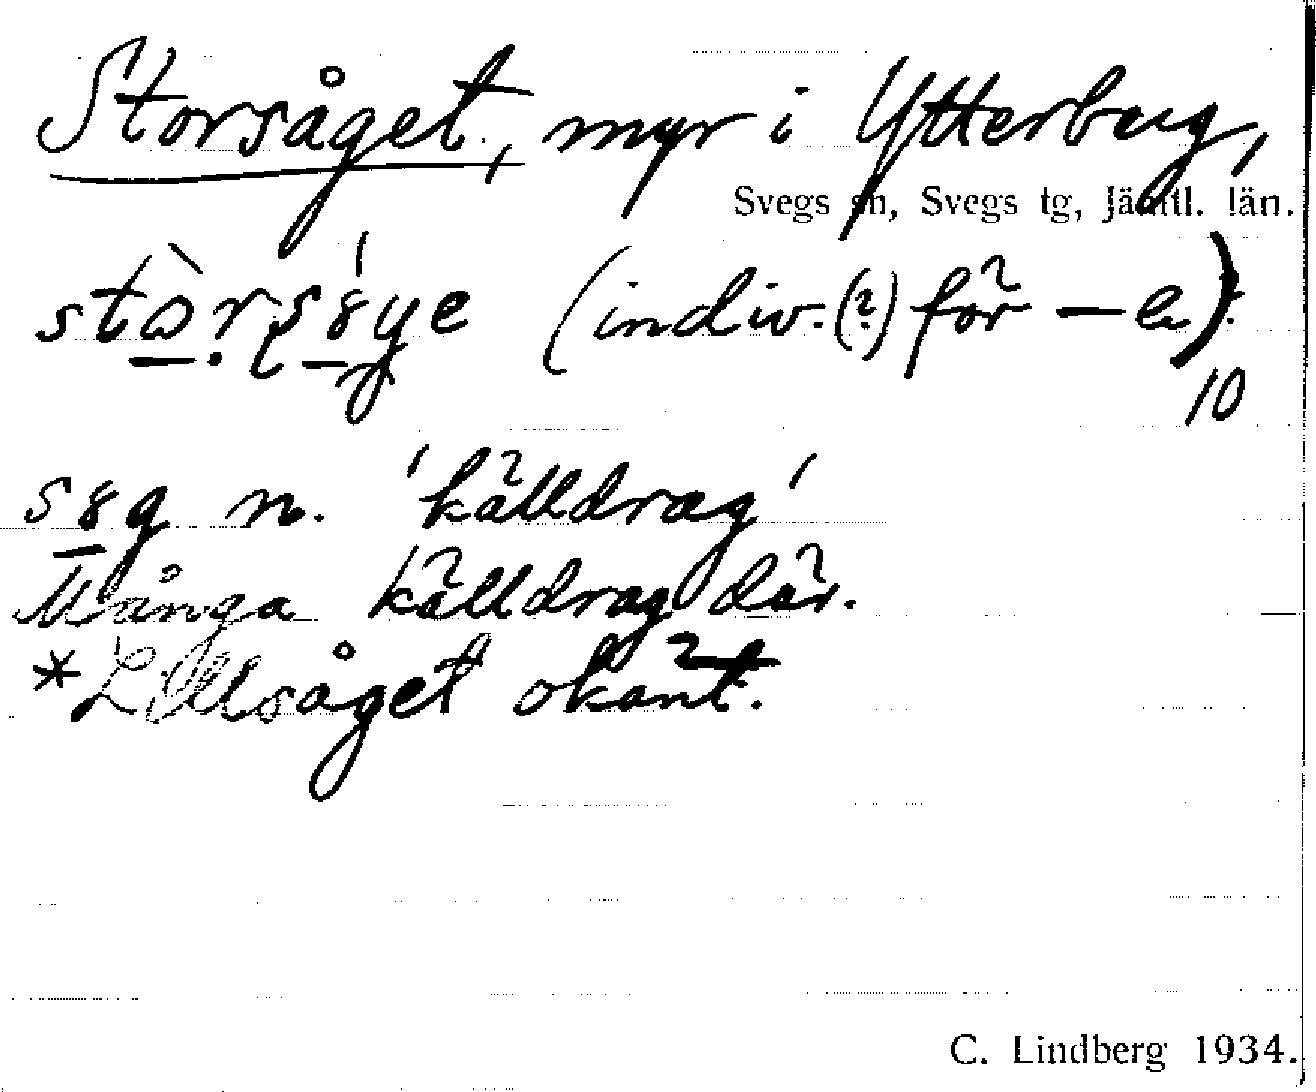 Storsåget, myr i Ytterberg,
Svegs sn, Svegs tg, Jämtl. län.
(indiv.(?) för —
10
n. 'källdrag'
Många källdrag där.
*Lillsåget okänt.
C. Lindberg 1934.